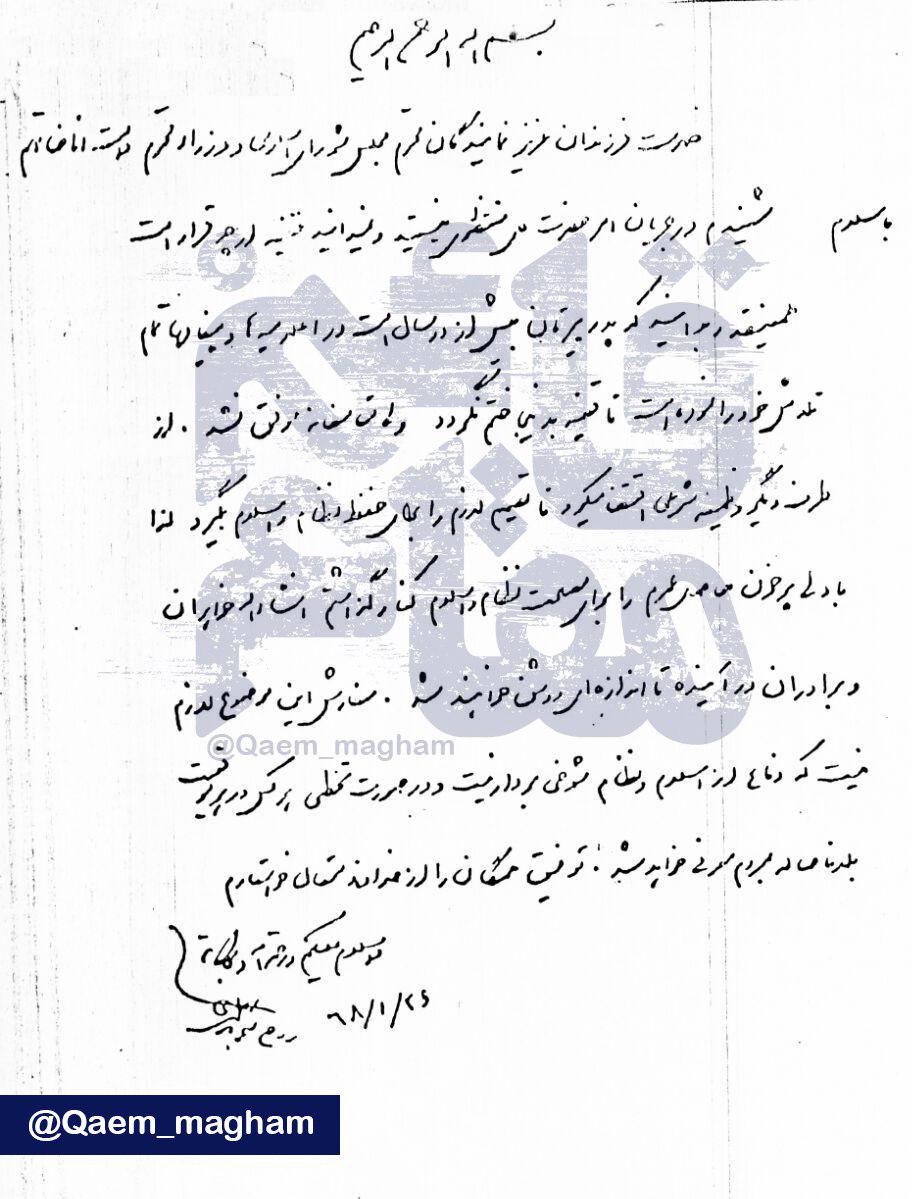 بسم الله الرحمن الرحیم
خدمت فرزندان عزیز نمایندگان محترم مجلس شورای اسلامی و وزراء محترم دامت افاضاتهم
با سلام شنیدم در جریان امر حضرت آقای منتظری نیستید و نمیدانید قضیه از چه قرار است
همینقدر بدانید که پدر پیرتان بیش از دو سال است در اعلامیه‌ها و پیغامها تمام
تلاش خود را نموده است تا قضیه بدینجا ختم نگردد ولی متأسفانه موفق نشد . از
طرف دیگر وظیفه شرعی اقتضا میکرد تا تصمیم لازم را برای حفظ نظام و اسلام بگیرد لذا
با دلی پرخون حاصل عمرم را برای مصلحت نظام و اسلام کنار گذاشتم انشاءالله خواهران
و برادران در آینده تا اندازه‌ای روشن خواهند شد . سفارش این موضوع لازم
نیست که دفاع از اسلام و نظام شوخی بردار نیست و در صورت تخطی هر کس در هر موقعیت
بلافاصله به مردم معرفی خواهد شد . توفیق همگان را از خداوند متعال خواستارم
والسلام علیکم و رحمة الله و برکاته
۶۸/۱/۲۶ روح الله الموسوی
قائم مقام
@Qaem_magham
@Qaem_magham